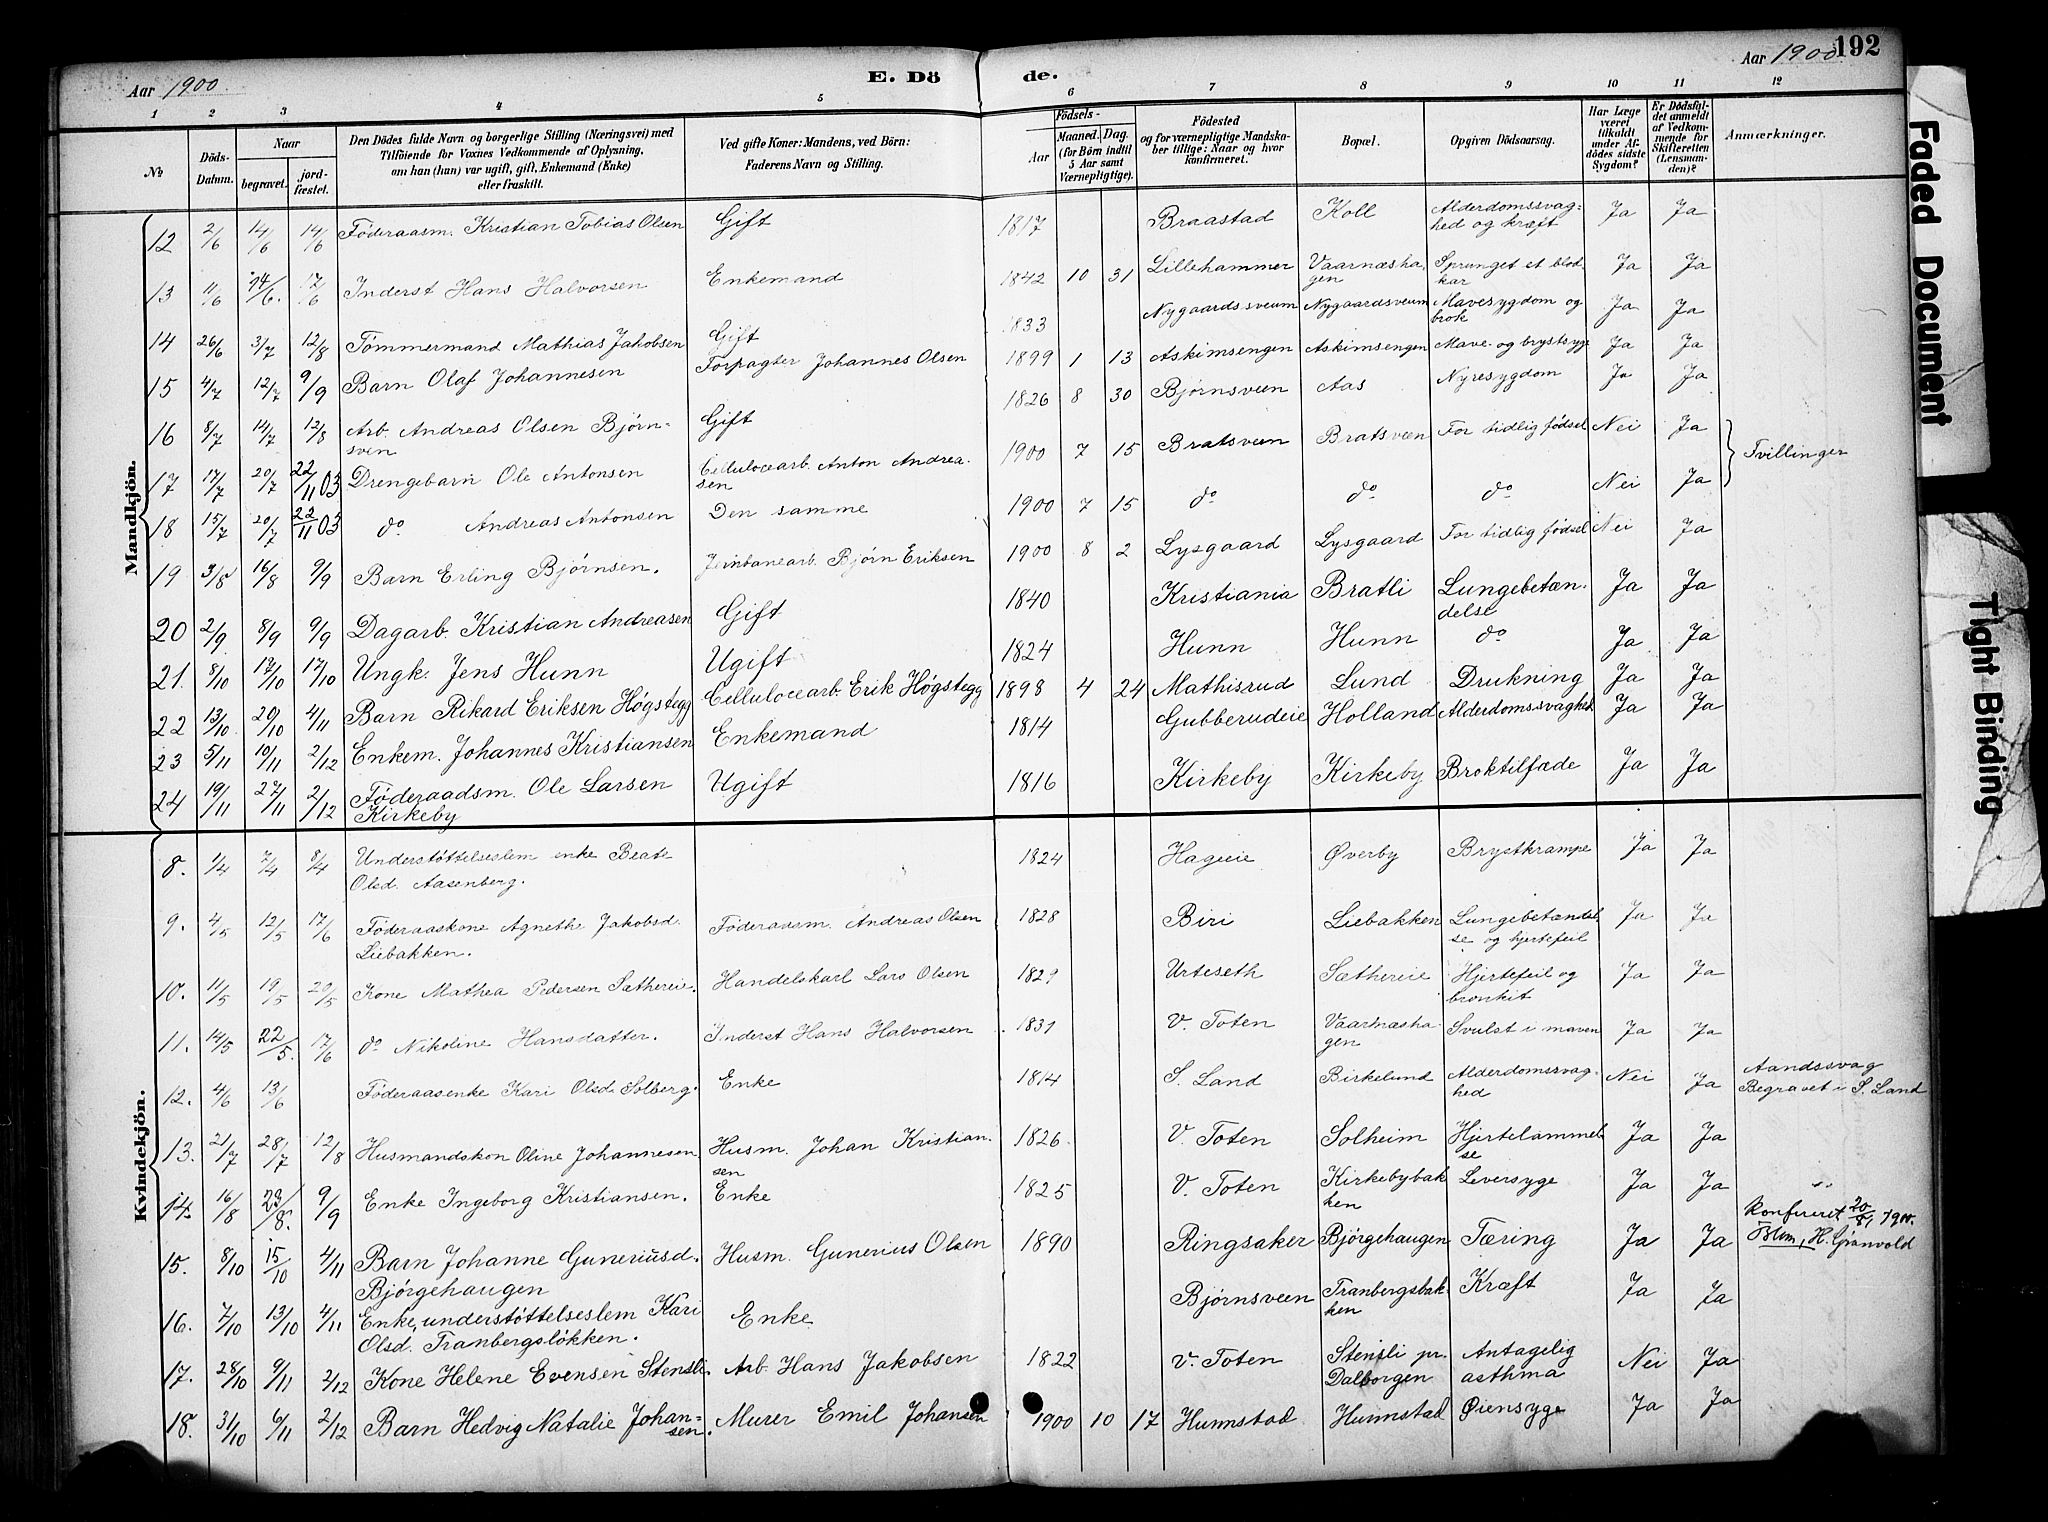 Aar 1900.
E. Dö
de.
Aar 1900
192
1 2 3 4 5 6 7 8 9 10 11 12
No
Döds-Datum.
Naar
begravet.
jord-fæstet.
Den Dödes fulde Navn og borgerlige Stilling (Næringsvei) med
Tilföiende for Voxnes Vedkommende af Oplysning,
om han (hun) var ugift, gift, Enkemand (Enke)
eller fraskilt.
Ved gifte Koner: Mandens, ved Börn:
Faderens Navn og Stilling.
Födsels-
Aar
Maaned. Dag.
(for Börn indtil
5 Aar samt
Værnepligtige).
Födested
og for værnepligtige Mandska-
ber tillige: Naar og hvor
konfirmeret.
Bopæl.
Opgiven Dödsaarsag.
Har Læge
været
tilkaldt
under Af-
dödes sidste
Sygdom?
Er Dödsfal-
det anmeldt
af Vedkom-
mende for
Skifteretten
(Lensman-
den)?
Anmærkninger.
Mandkjön.
12 2/6 14/6 14/6 Föderaasm. Kristian Tobias Olsen Gift 1817 Braastad Koll Alderdomssvag-
hed og kræft Ja Ja
13 11/6 14/6. 17/6 Inderst Hans Halvorsen Enkemand 1842 10 31 Lillehammer Vaarnæsha-
gen Sprunget et blod-
kar Ja Ja
14 26/6 3/7 12/8 Tömmermand Mathias Jakobsen Gift 1833 Nygaardssveum Nygaardsveum Mavesygdom og
brok Ja Ja
15 4/7 12/7 9/9 Barn Olaf Johannesen Forpagter Johannes Olsen 1899 1 13 Askimsengen Askimsengen Mave- og brystsyge Ja Ja
16 8/7 14/7 12/8 Arb. Andreas Olsen Björn-
sven Gift 1826 8 30 Bjørnsveen Aas Nyresygdom Ja Ja
17 17/7 20/7 22/11 03 Drengebarn Ole Antonsen Cellulocearb. Anton Andrea-
sen 1900 7 15 Bratsveen Bratsveen For tidlig fødsel Nei Ja Tvillinger
18 15/7 20/7 22/11 03 do Andreas Antonsen Den samme 1900 7 15 do do do Nei Ja
19 3/8 16/8 9/9 Barn Erling Bjørnsen. Jernbanearb. Bjørn Eriksen 1900 8 2 Lysgaard Lysgaard For tidlig fødsel Nei Ja
20 2/9 8/9 9/9 Dagarb. Kristian Andreasen Gift 1840 Kristiania Bratli Lungebetæn-
delse Ja Ja
21. 8/10 17/10 17/10 Ungk. Jens Hunn Ugift 1824 Hunn Hunn do Ja Ja
22 13/10 20/10 4/11 Barn Rikard Eriksen Høgstegg Cellulocearb. Erik Høgstegg 1898 4 24 Mathisrud Lund Drukning Ja Ja
23 5/11 10/11 2/12 Enkem. Johannes Kristiansen Enkemand 1814 Gubberudeie Holland Alderdomssvaghed Ja Ja
24 19/11 27/11 2/12 Föderaadsm. Ole Larsen
Kirkeby Ugift 1816 Kirkeby Kirkeby Broktilfælde Ja Ja
Kvindekjön.
8. 1/4 7/4 8/4 Understöttelseslem enke Beate
Olsd. Aasenberg. 1824 Hageeie Øverby Brystkrampe Ja Ja
9. 4/5 12/5 17/6 Föderaaskone Agnethe Jakobsd.
Liebakken. Föderaadsm. Andreas Olsen 1828 Biri Liebakken Lungebetændel-
se og hjertefeil Ja Ja
10. 11/5 19/5 20/5 Kone Mathea Pedersen Sæthereie. Handelskarl Lars Olsen 1829 Urteseth Sæthereie Hjertefeil og
bronkit Ja Ja
11. 14/5 22/5. 17/6 do Nikoline Hansdatter. Inderst Hans Halvorsen 1831 V. Toten Vaarnæsha-
gen Svulst i maven Ja Ja
12. 4/6 13/6 Föderaasenke Kari Olsd. Solberg. Enke 1814 S. Land Birkelund Alderdomssvag-
hed Nei Ja Aandssvag
Begravet i S. Land
13. 21/7 28/7 12/8 Husmandskon Oline Johannesen Husm. Johan Kristian-
sen 1826. V. Toten Solheim Hjertelammel-
se Ja Ja
14. 16/8 23/8. 9/9 Enke Ingeborg Kristiansen. Enke 1825 V. Toten Kirkebybak-
ken Leversyge Ja Ja
15. 8/10 15/10 4/11 Barn Johanne Guneriusd.
Bjørgehaugen Husm. Gunerius Olsen 1890 Ringsaker Bjørgehaugen Tæring Ja Ja
16. 7/10 13/10 4/11 Enke, understöttelseslem Kari
Olsd. Tranbergsløkken. Enke Bjørnsveen Tranbergsbak-
ken Kræft Ja Ja
17. 28/10 9/11 2/12 Kone Helene Evensen Stensli. Arb. Hans Jakobsen 1822 V. Toten Stensli pr.
Dalborgen Antagelig
asthma Nei Ja
18. 31/10 6/11 2/12 Barn Hedvig Natalie Johan-
sen. Murer Emil Johansen 1900 10 17 Hunnstad Hunnstad Øiensyge Ja Ja
H. Grønvold
Faded Document
Tight Binding